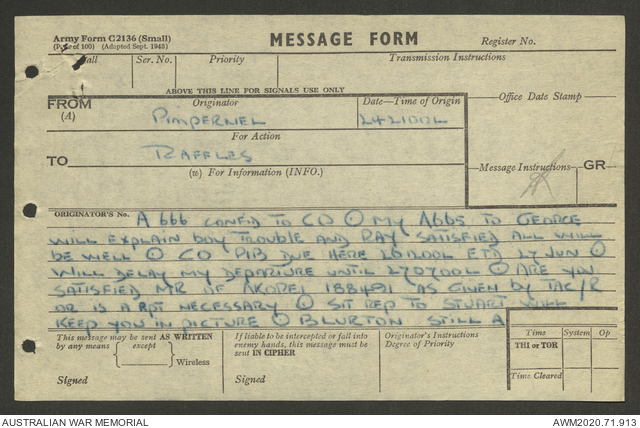 Army Form C2136 (Small)
(Pads of 100) (Adapted Sept. 1943)
MESSAGE FORM
Register No.
Call
Ser. No.
Priority
Transmission Instructions
ABOVE THIS LINE FOR SIGNALS USE ONLY
FROM
(A)
Originator
PIMPERNEL
Date—Time of Origin
242100L
Office Date Stamp
For Action
TO
RAFFLES
(w) For Information (INFO.)
Message Instructions
GR
ORIGINATOR'S No.
A 666 CONFD TO CO ⊙ MY A665 TO GEORGE
WILL EXPLAIN BOY TROUBLE AND RAY SATISFIED ALL WILL
BE WELL ⊙ CO PIB DUE HERE 261200L ETD 27 JUN ⊙
WILL DELAY MY DEPARTURE UNTIL 270700L ⊙ ARE YOU
SATISFIED MR OF 188491 AS GIVEN BY TAC/R
OR IS A RPT NECESSARY ⊙ SIT REP TO STUART WILL
KEEP YOU IN PICTURE ⊙ BLURTON STILL A
This message may be sent AS WRITTEN
by any means except
Wireless
Signed
If liable to be intercepted or fall into
enemy hands, this message must be
sent IN CIPHER
Signed
Originator's Instructions
Degree of Priority
Time
System
Op
THI or TOR
Time Cleared
AUSTRALIAN WAR MEMORIAL
AWM2020.71.913